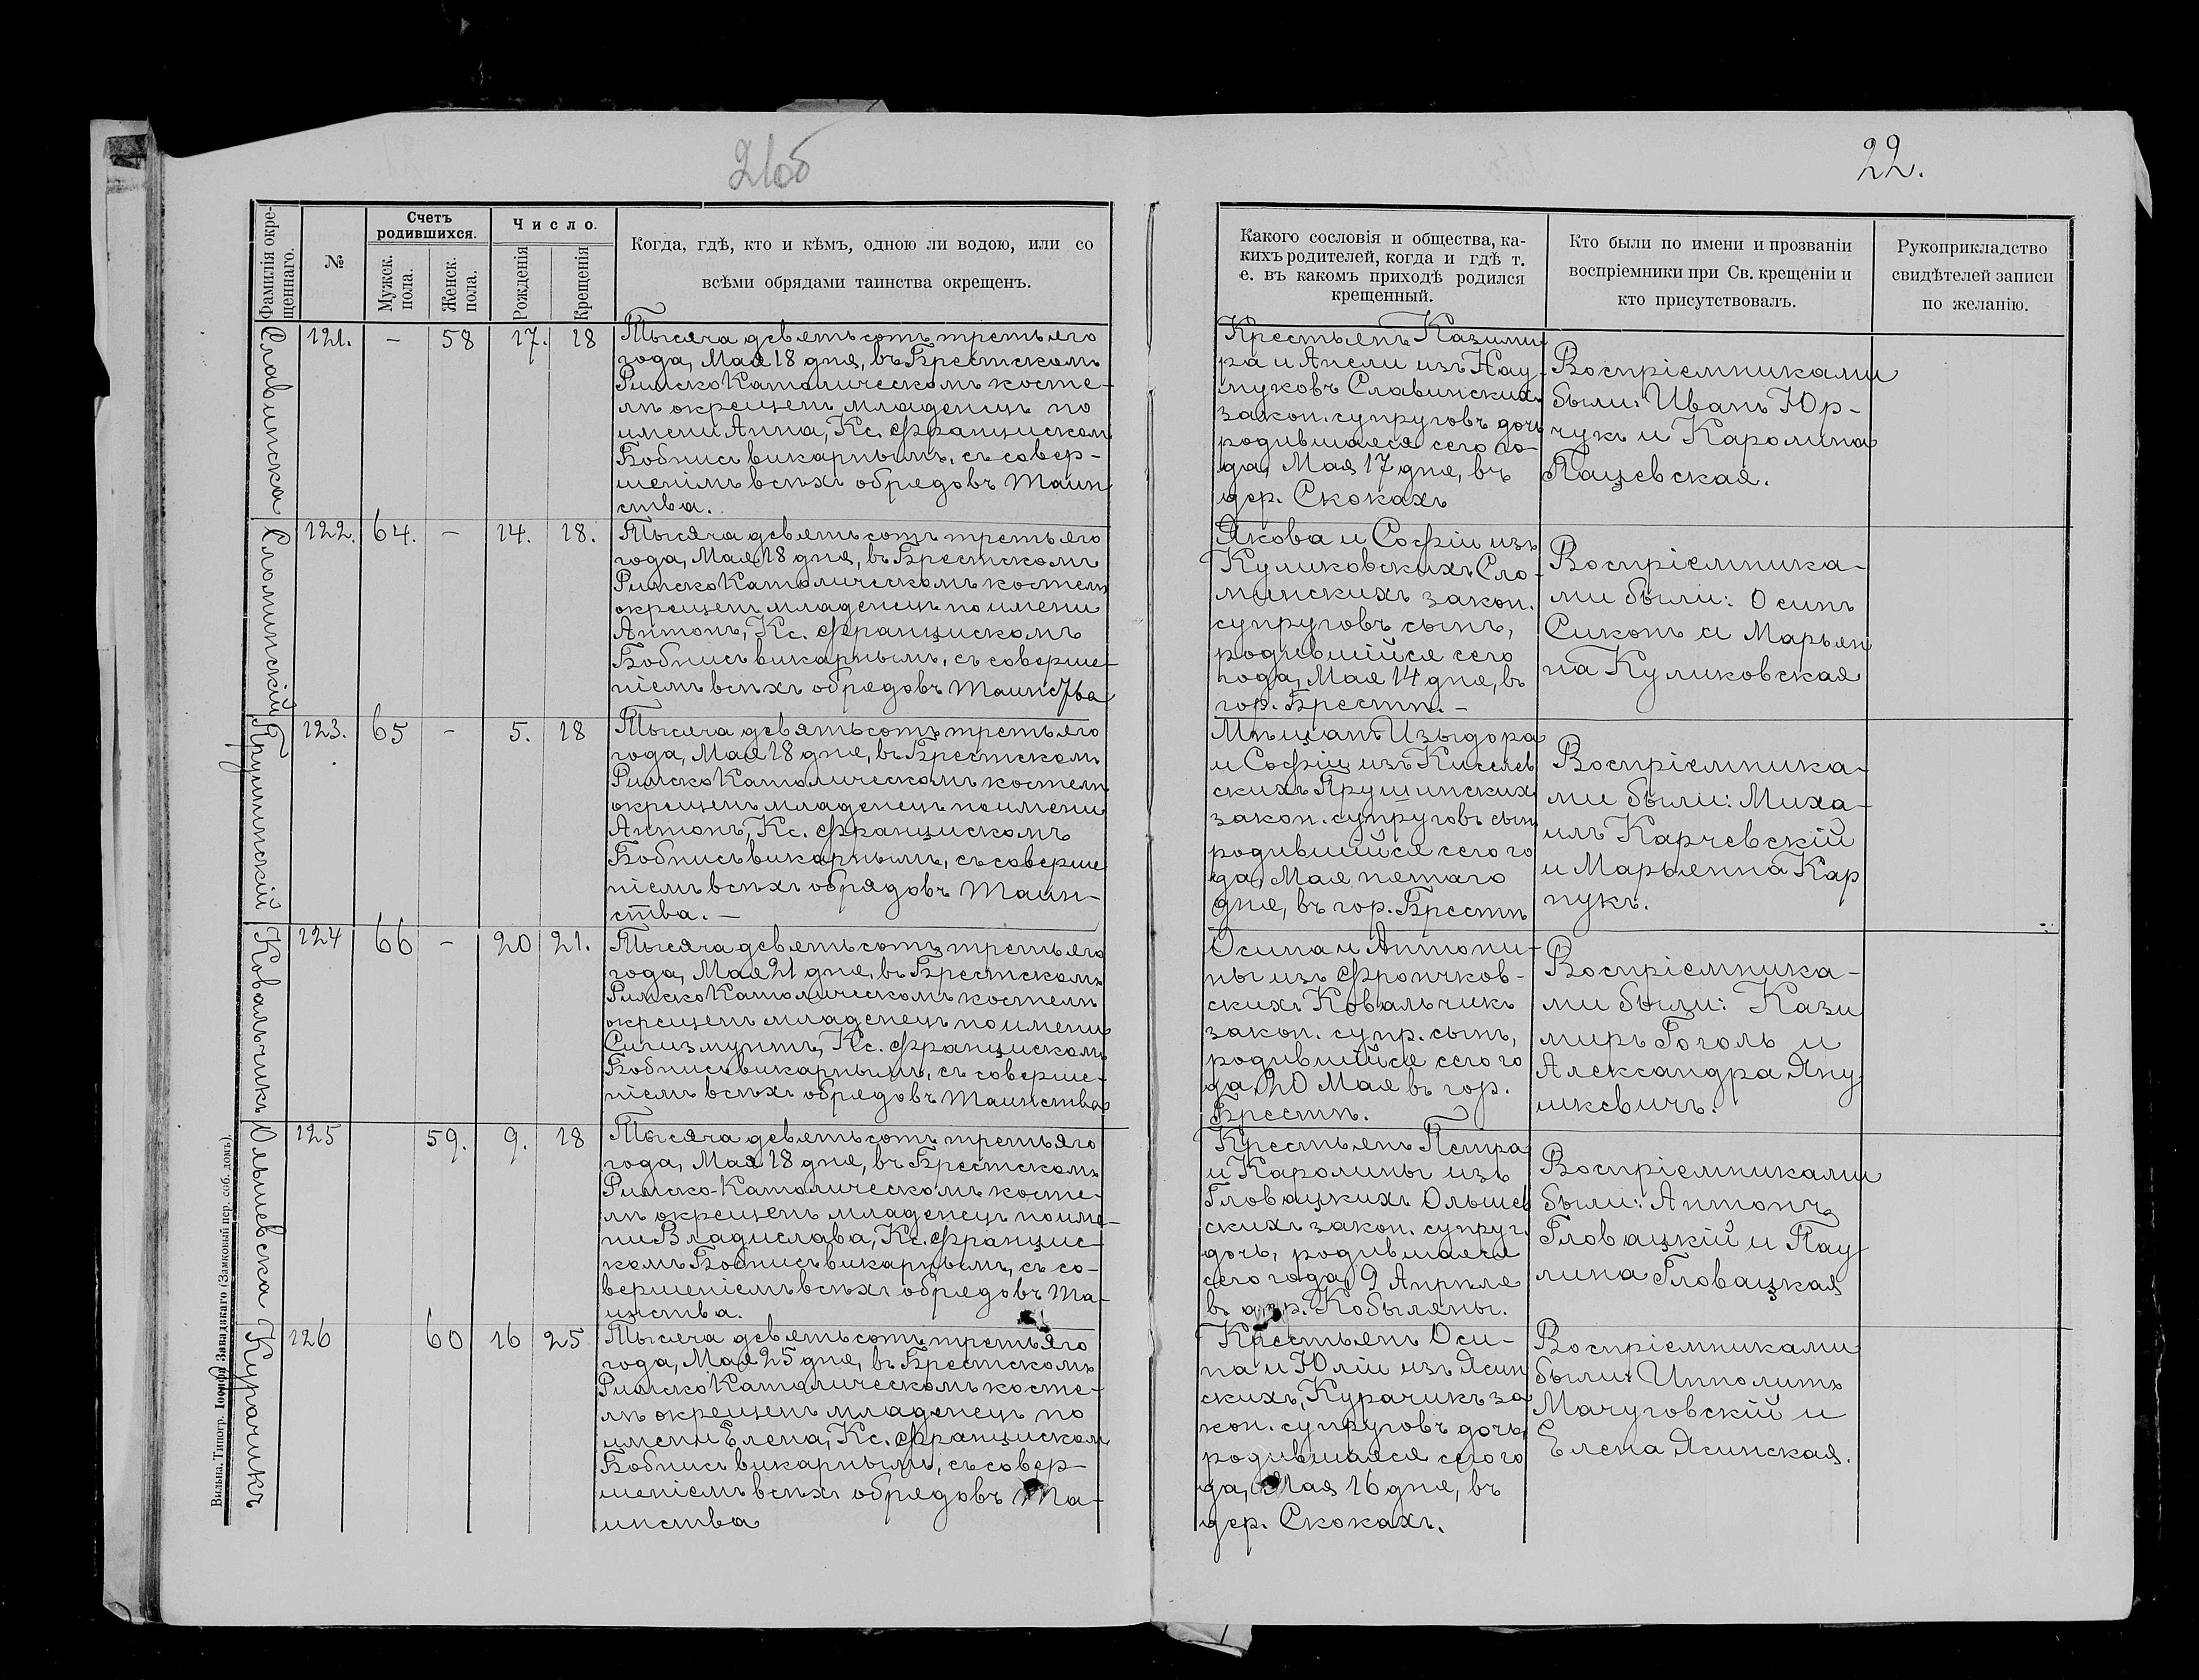 21об
22.
Фамилія окре-
щеннаго.
№
Счетъ
родившихся.
Мужск.
пола.
Женск.
пола.
Число.
Рожденія
Крещенія
Когда, гдѣ, кто и кѣмъ, одною ли водою, или со
всѣми обрядами таинства окрещенъ.
Какого сословія и общества, ка-
кихъ родителей, когда и гдѣ т.
е. въ какомъ приходѣ родился
крещенный.
Кто были по имени и прозванію
воспріемники при Св. крещеніи и
кто присутствовалъ.
Рукоприкладство
свидѣтелей записи
по желанію.
Славинска
121. – 58 17. 18
Тысяча девятьсотъ третьяго
года, Мая 18 дня, въ Брестскомъ
Римско Католическомъ косте-
лѣ окрещенъ младенецъ по
имени Анна, Кс. Францискомъ
Бобнисъ викарнымъ, съ совер-
шеніемъ всѣхъ обрядовъ Таин
ства.
Крестьянъ Казими
ра и Анели изъ Нау-
муковъ Славинскихъ
закон. супруговъ дочь
родившаяся сего го-
да, Мая 17 дня, въ
дер. Скокахъ
Воспріемниками
были: Иванъ Юр-
чукъ и Каролина
Пацевская.
Сломинскій
122. 64. – 14. 18.
Тысяча девятьсотъ третьяго
года, Мая 18 дня, въ Брестскомъ
Римско Католическомъ костелѣ
окрещенъ младенецъ по имени
Антонъ, Кс. Францискомъ
Бобнисъ викарнымъ, съ соверше-
ніемъ всѣхъ обрядовъ Таинства
Якова и Софіи изъ
Куликовскихъ Сло-
минскихъ закон.
супруговъ сынъ,
родившійся сего
года, Мая 14 дня, въ
гор. Брестѣ. –
Воспріемника-
ми были: Осипъ
Сиконъ и Марьян
на Куликовская
Прушинскій
123. 65 – 5. 18
Тысяча девятьсотъ третьяго
года, Мая 18 дня, въ Брестскомъ
Римско Католическомъ костелѣ
окрещенъ младенецъ по имени
Антонъ, Кс. Францискомъ
Бобнисъ викарнымъ, съ соверше
ніемъ всѣхъ обрядовъ Таин-
ства. –
Мѣщанъ Изыдора
и Софіи изъ Киселев
скихъ Прушинскихъ
закон. супруговъ сынъ
родившійся сего го
да, Мая пятаго
дня, въ гор. Брестѣ
Воспріемника-
ми были: Миха-
илъ Карчевскій
и Марьянна Кар
пукъ.
Ковальчикъ
124 66 – 20 21.
Тысяча девятьсотъ третьяго
года, Мая 21 дня, въ Брестскомъ
Римско Католическомъ костелѣ
окрещенъ младенецъ по имени
Сигизмунтъ, Кс. Францискомъ
Бобнисъ викарнымъ, съ соверше-
ніемъ всѣхъ обрядовъ Таинства
Осипа и Антони-
ны изъ Фрончков-
скихъ Ковальчикъ
закон. супр. сынъ,
родившійся сего го
да, 20 Мая въ гор.
Брестѣ.
Воспріемника-
ми были: Кази
миръ Гоголь и
Александра Яну
шкевичъ.
Ольшевска
125 59. 9. 18
Тысяча девятьсотъ третьяго
года, Мая 18 дня, въ Брестскомъ
Римско-Католическомъ косте-
лѣ окрещенъ младенецъ по име-
ни Владислава, Кс. Францис-
комъ Бобнисъ викарнымъ, съ со-
вершеніемъ всѣхъ обрядовъ Та-
инства.
Крестьянъ Петра
и Каролины изъ
Гловацкихъ Ольшев
скихъ закон. супруг.
дочь, родившаяся
сего года, 9 Апрѣля
въ дер. Кобыляны.
Воспріемниками
были: Антонъ
Гловацкій и Пау
лина Гловацкая
Курачикъ
126 60 16 25
Тысяча девятьсотъ третьяго
года, Мая 25 дня, въ Брестскомъ
Римско Католическомъ косте-
лѣ окрещенъ младенецъ по
имени Елена, Кс. Францискомъ
Бобнисъ викарнымъ, съ совер-
шеніемъ всѣхъ обрядовъ Та-
инства
Крестьянъ Оси-
па и Юліи изъ Ясин
скихъ, Курачикъ за
кон. супруговъ дочь,
родившаяся сего го
да, Мая 16 дня, въ
дер. Скокахъ.
Воспріемниками
были: Ипполитъ
Мачуговскій и
Елена Ясинская.
Вильна, Типогр. Іосифа Завадзкаго (Замковый пер. соб. домъ).